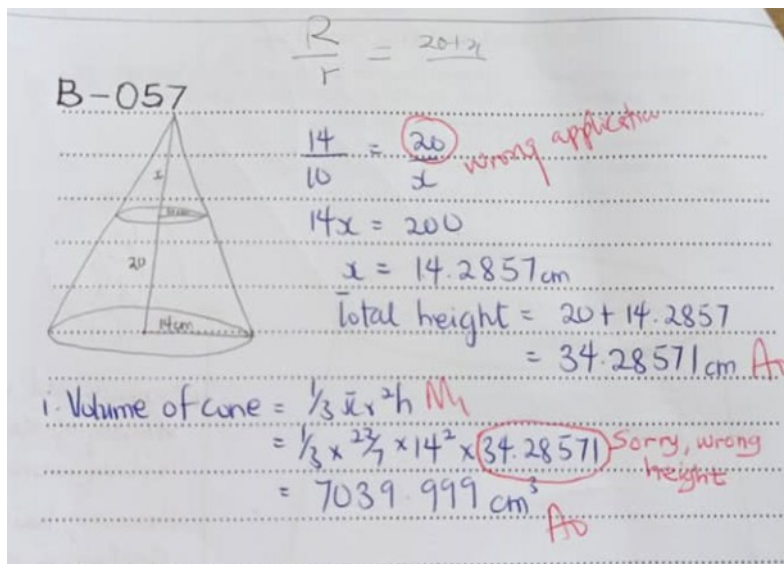 R/r = 20+x
B-057
14/10 = 20/x wrong application
14x = 200
x = 14.2857cm
x
10cm
20
14cm
Total height = 20 + 14.2857
= 34.28571 cm A0
i. Volume of cone = 1/3 πr²h M1
= 1/3 × 22/7 × 14² × 34.28571 Sorry, wrong height
= 7039.999 cm³
A0